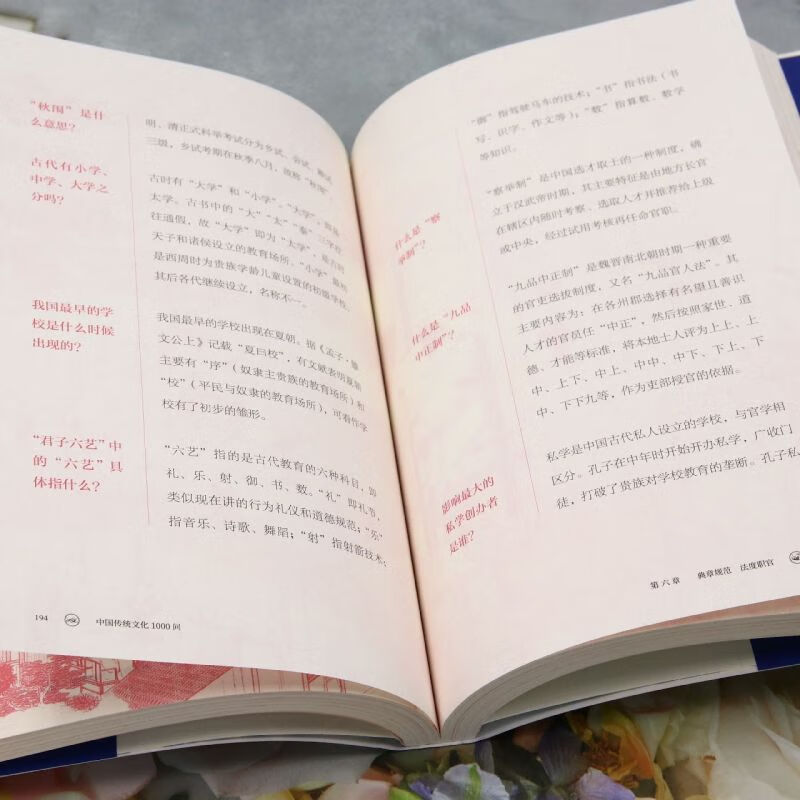 “秋闱”是什
么意思？
明、清正式科举考试分为乡试、会试、殿试
三级，乡试考期在秋季八月，故称“秋闱”。
古代有小学、
中学、大学之
分吗？
古时有“大学”和“小学”。“大学”，即是
太学。古书中的“大”“太”“泰”三字往
往通假，故“大学”即为“太学”，是古时
天子和诸侯设立的教育场所。“小学”最初
是西周时为贵族学龄儿童设置的初级学校，
其后各代继续设立，名称不一。
我国最早的学
校是什么时候
出现的？
我国最早的学校出现在夏朝。据《孟子·滕
文公上》记载“夏曰校”，有文献表明夏朝
主要有“序”（奴隶主贵族的教育场所）和
“校”（平民与奴隶的教育场所），可看作学
校有了初步的雏形。
“君子六艺”中
的“六艺”具
体指什么？
“六艺”指的是古代教育的六种科目，即
礼、乐、射、御、书、数。“礼”即礼节，
类似现在讲的行为礼仪和道德规范；“乐”
指音乐、诗歌、舞蹈；“射”指射箭技术；
194 中国传统文化1000问
“御”指驾驶马车的技术；“书”指书法（书
写、识字、作文等）；“数”指算数、数学
等知识。
什么是“察
举制”？
“察举制”是中国选才取士的一种制度，确
立于汉武帝时期，其主要特征是由地方长官
在辖区内随时考察、选取人才并推荐给上级
或中央，经过试用考核再任命官职。
什么是“九品
中正制”？
“九品中正制”是魏晋南北朝时期一种重要
的官吏选拔制度，又名“九品官人法”。其
主要内容为：在各州郡选择有名望且善识
人才的官员任“中正”，然后按照家世、道
德、才能等标准，将本地士人评为上上、上
中、上下、中上、中中、中下、下上、下
中、下下九等，作为吏部授官的依据。
影响最大的
私学创办者
是谁？
私学是中国古代私人设立的学校，与官学相
区分。孔子在中年时开始开办私学，广收门
徒，打破了贵族对学校教育的垄断。孔子私
第六章 典章规范 法度职官